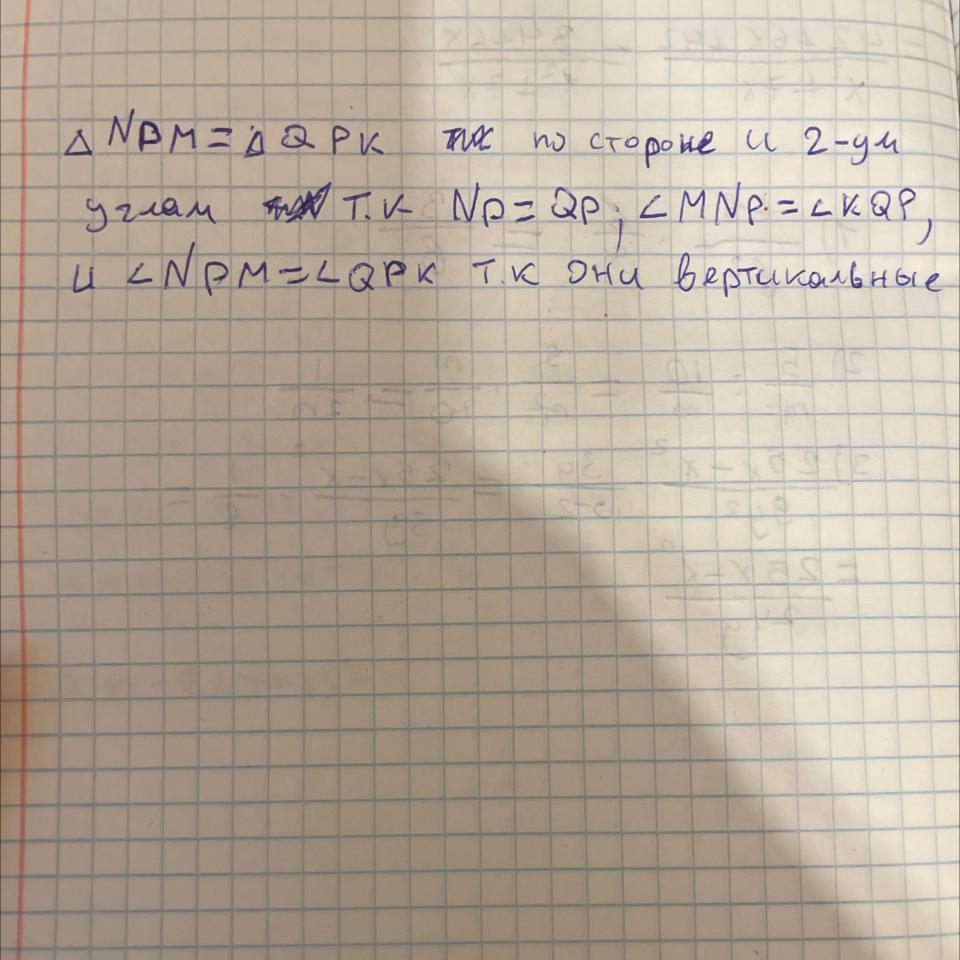 Δ NPM = Δ QPK по стороне и 2-ум
углам т.к NP = QP; ∠MNP = ∠KQP,
и ∠NPM = ∠QPK т.к они вертикальные